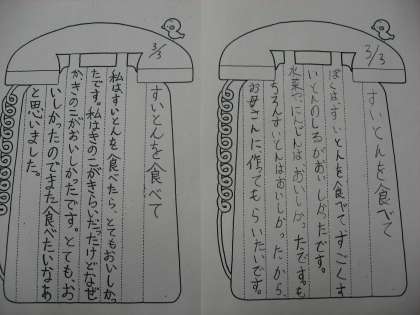 3/3
すいとんを食べて
私はすいとんを食べたら、とてもおいしかっ
たです。私はきのこがきらいだったけどなぜ
かきのこがおいしかったです。とても、お
いしかったのでまた食べたいなあ
と思いました。
3/3
すいとんを食べて
ぼくは、すいとんを食べてすごくす
いとんのしるがおいしかったです。
水菜や、にんじんはおいしかったです。も
ちろんすいとんはおいしかったから、
お母さんに作ってもらいたいです。